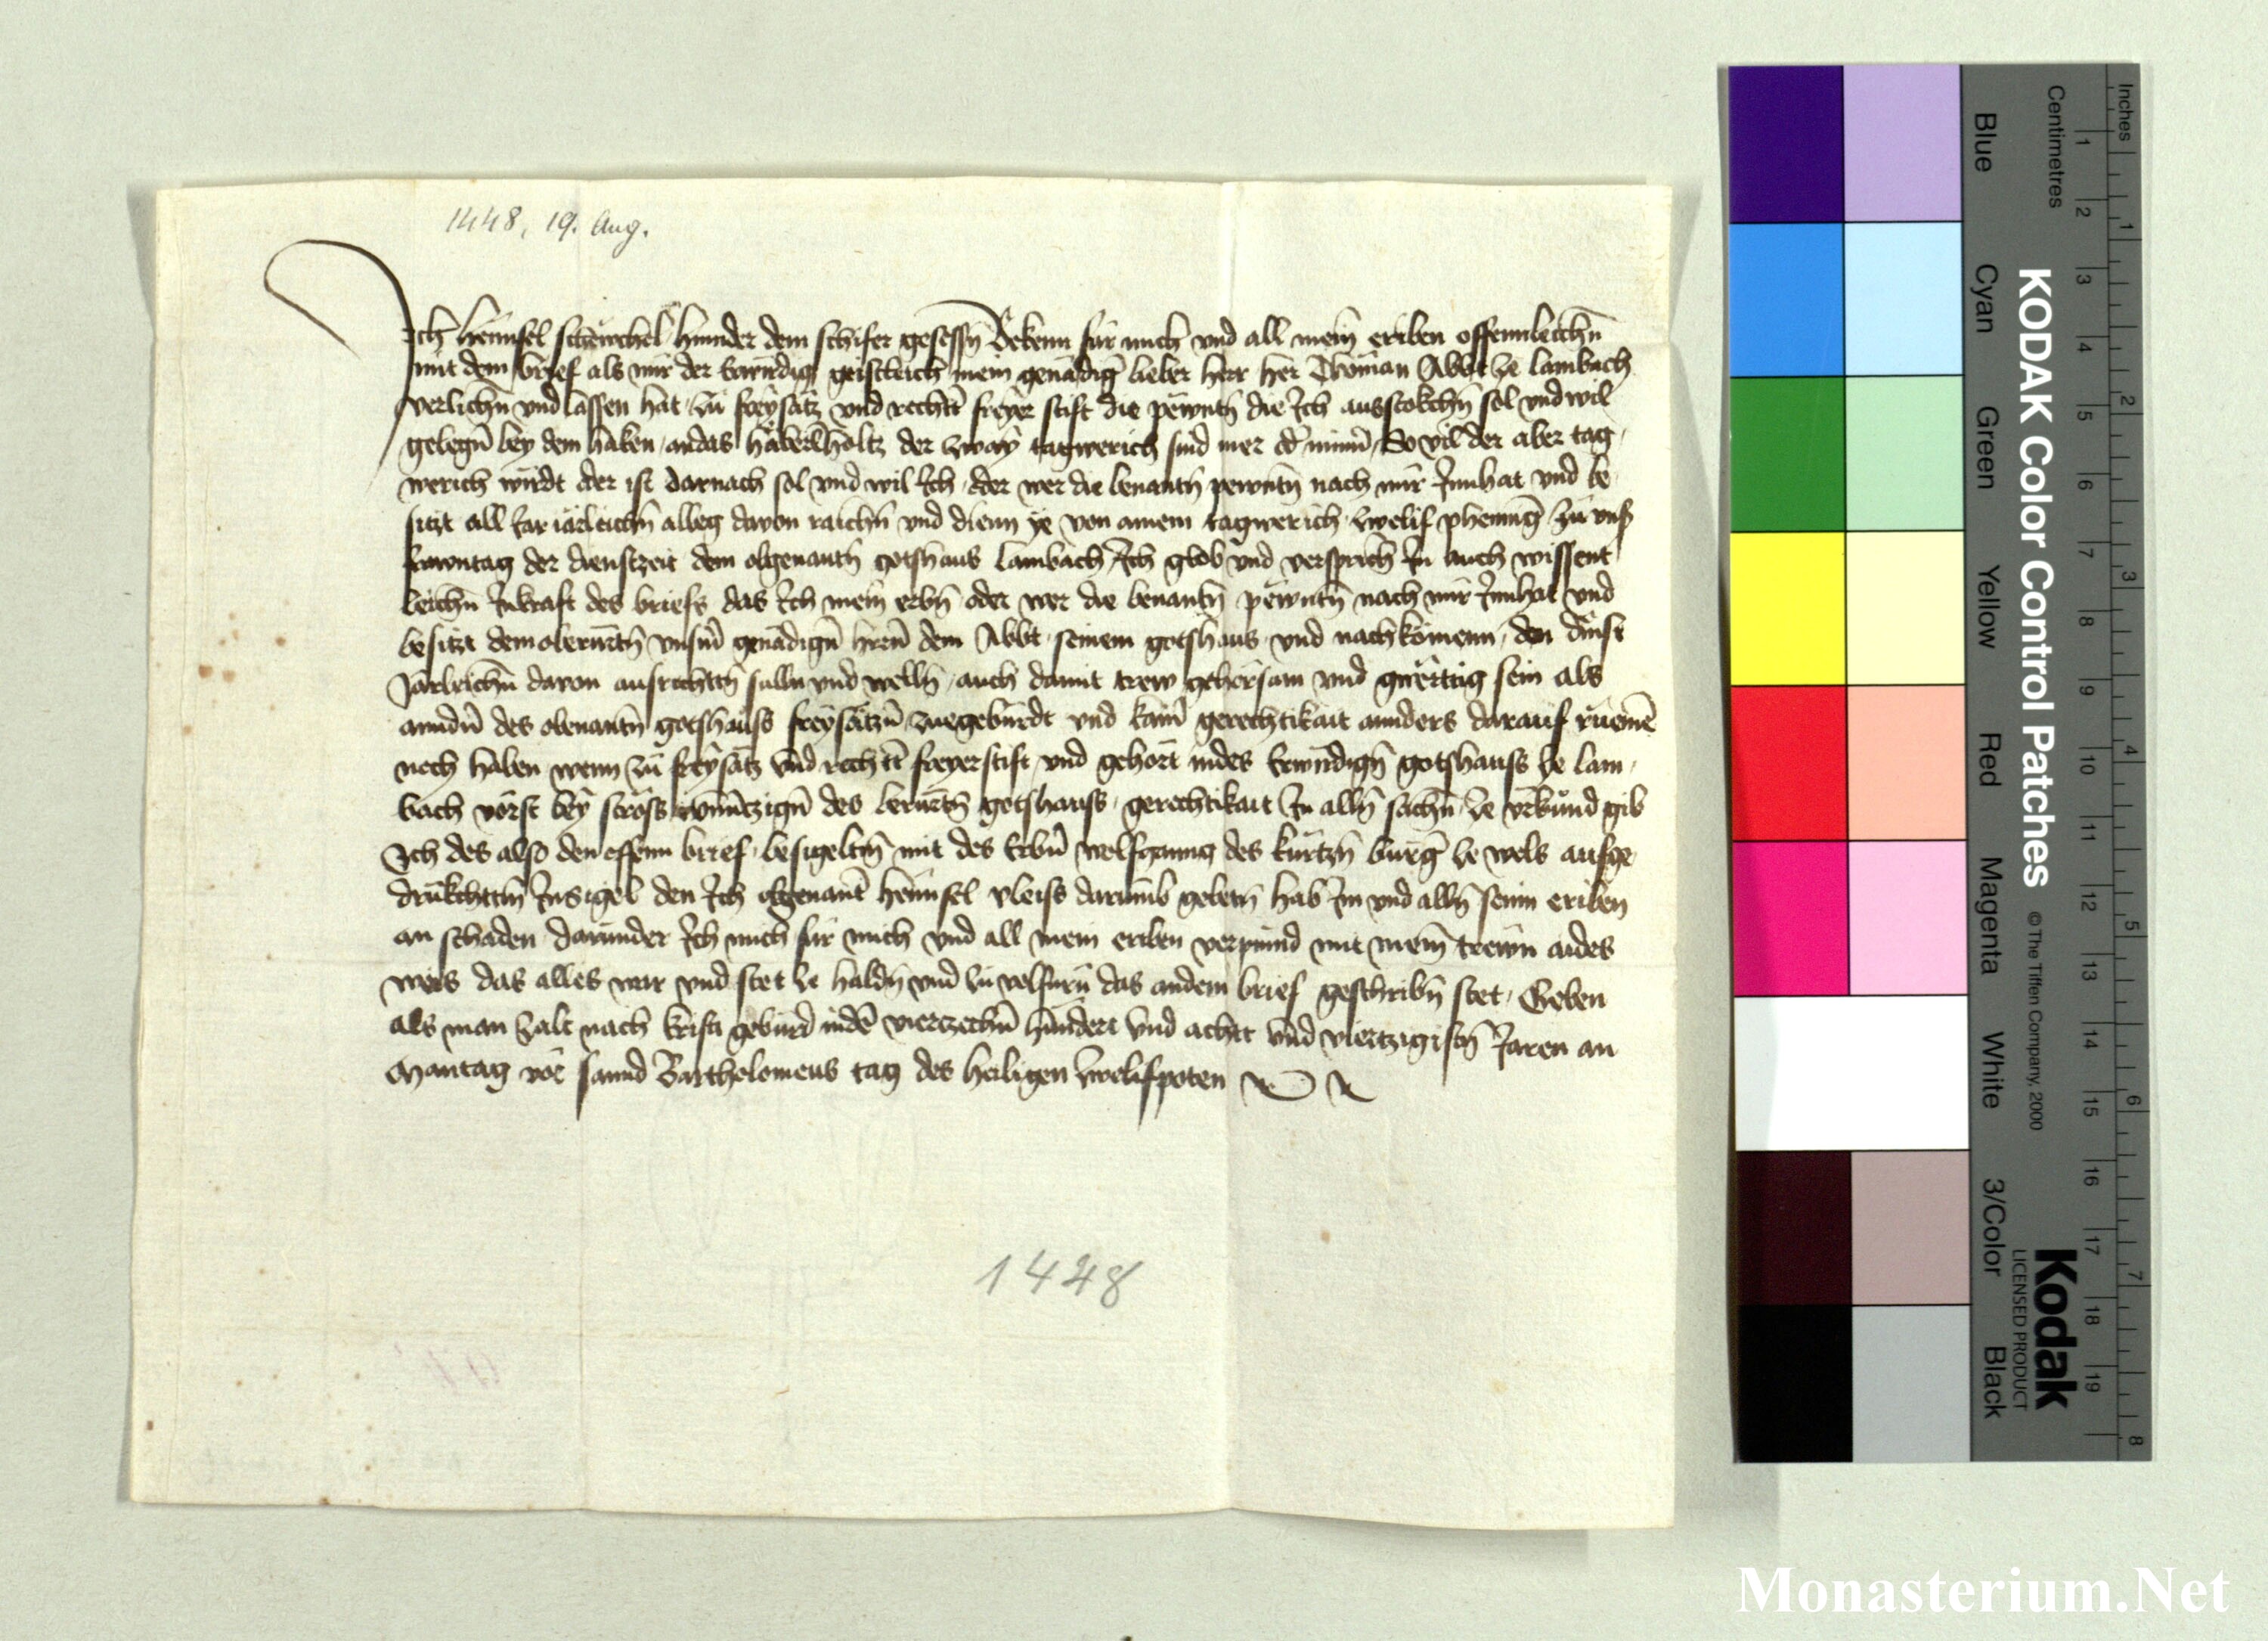 1448, 19. Aug.
Ich Hennsel schewchel hinnder dem schifer gesessn̄ Bekenn fur mich vnd all mein eriben offennleichn̄
mit dem brief als mir der Erwirdig geistleich mein genadiḡ lieber herr her Thoman Abbt ze lambach
verlichn̄ vnd lassen hat zu freysatz vnd rechtt̄ freyer stift die pewntn̄ die Ich ausstokchn̄ sol vnd wil
gelegn̄ bey dem haken an das haberlholtz der zway tagwerich sind mer od̄ minn̄ So vil der aber tag
werich wirdt oder ist darnach sol vnd wil Ich oder wer die benantn̄ pewntn̄ nach mir Innhat vnd be
sitzt all Iar iärleichn̄ albeg davon raichn̄ vnd dienn ye von ainem tagwerich zwelif pheninḡ zu vnſ
frawntag der dienstzeit dem obgenantn̄ gotshaus lambach Ich glob vnd versprich In auch wissent
leichn̄ Inkraft des briefs das Ich mein erbn̄ oder wer die benantn̄ pewntn̄ nach mir Innhat vnd
besitzt dem oberurtn̄ vnsm̄ genadign̄ hren̄ dem Abbt seinem gotshaus vnd nachkömenn den dinst
Jarleichn̄ davon ausrichttn̄ sulln vnd welln̄ auch damit trew gehorsam vnd gwerttig sein als
anndn̄ des obenantn̄ gotshauss freysätzn̄ zuegebürdt vnd kain̄ gerechtikait annders darauf ruemē
noch haben wenn zu freysatz vnd rechtt̄ freyerstift vnd gehort in des Erwirdign̄ gotshauss ze lam
bach vorst bey stross des berurtn̄ gotshauss gerechtikait In alln̄ sachn̄ ze vrkund gib
Ich des also den offenn brief besigeltn̄ mit des Erbn̄ wolfganng des kurtzn̄ burḡ ze wels aufge
drukchttm̄ Insigel den Ich obgenant hennsel vleiss darumb gebetn̄ hab Im vnd alln̄ seinn eriben
an schaden darunder Ich mich fur mich vnd all mein eriben verpind mit mein̄ trewn aides
weis das alles war vnd stet ze haldn̄ vnd zu volfurn̄ das an dem brief geschribn̄ stet Geben
als man zalt nach kristi geburd in dē vierczechn̄ hundert vnd achtt vnd viertzigistn̄ Jaren an
Mantag vor sannd Bartholomeus tag des heiligen zwelifpoten
1448
Inches
Centimetres
KODAK Color Control Patches © The Tiffen Company, 2000
Kodak
LICENSED PRODUCT
Blue
Cyan
Green
Yellow
Red
Magenta
White
3/Color
Black
1 2 3 4 5 6 7 8 9 10 11 12 13 14 15 16 17 18 19
1 2 3 4 5 6 7 8
Monasterium.Net